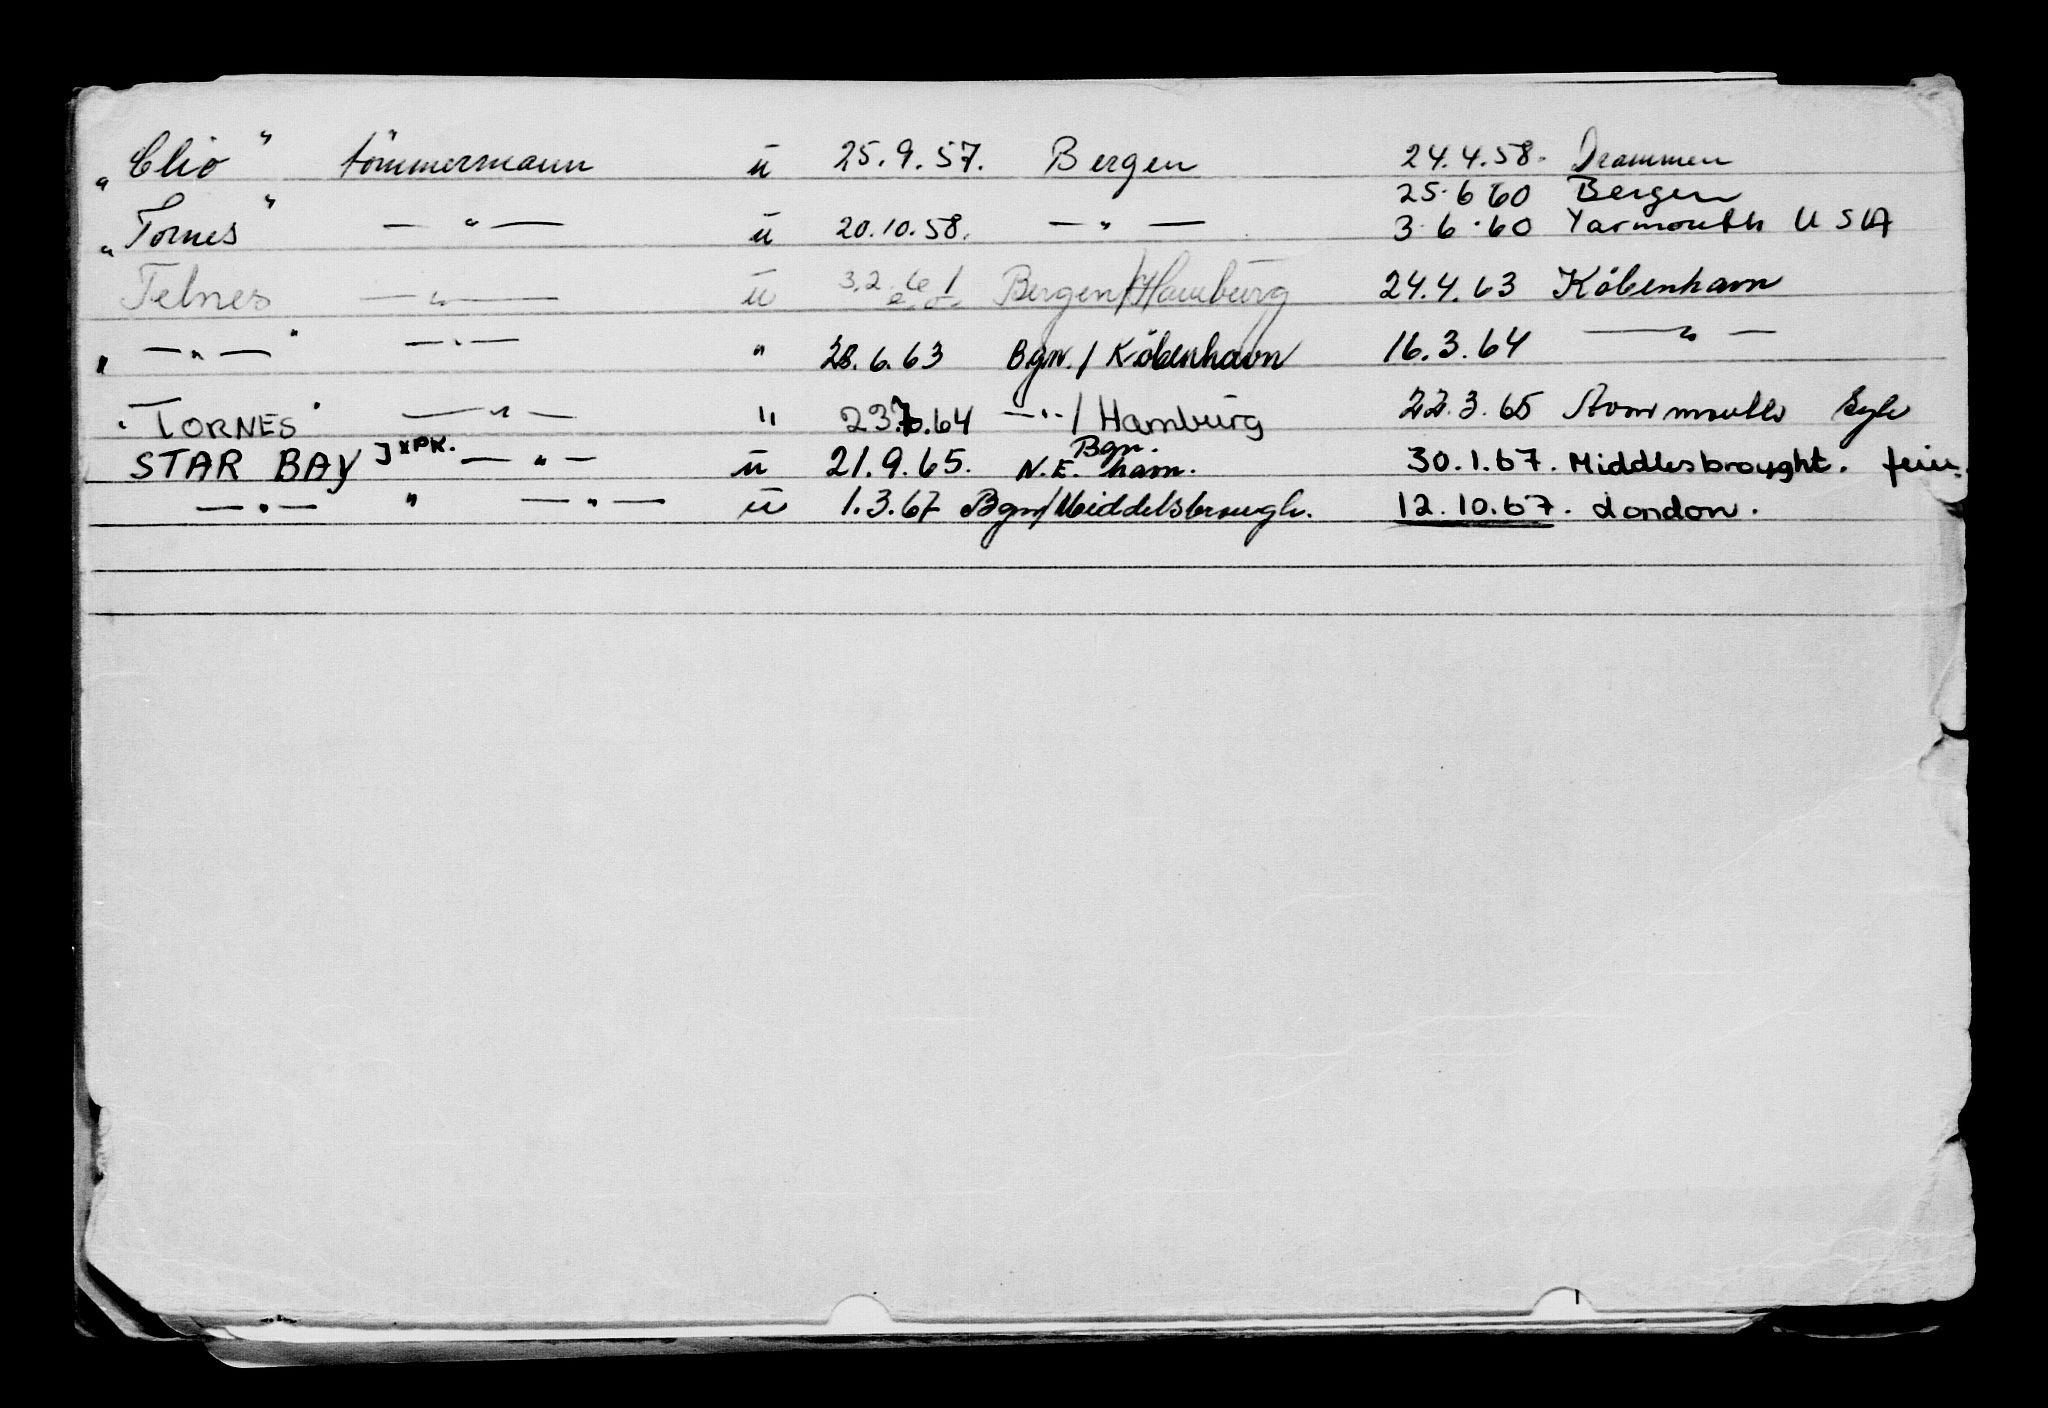 "Clio" tömmermann ü 25.9.57. Bergen 24.4.58. Drammen
25.6 60 Bergen
"Tornes" — " — ü 20.10.58. — " — 3.6.60 Yarmouth U S A
Telnes — " — ü 3.2.61 Bergen/Hamburg 24.4.63 Köbenhavn
" — " — " — " — " 28.6.63 Bgn./Köbenhavn 16.3.64 — " —
"TORNES" — " — " 23.7.64 — " — / Hamburg 22.3.65 Avonmouth
STAR BAY ]xPK. — " — ü 21.9.65. Bgn. N.E. havn. 30.1.67. Middlesbroyght.
— " — " — " — ü 1.3.67 Bgn/Middelsbrough. 12.10.67. London.